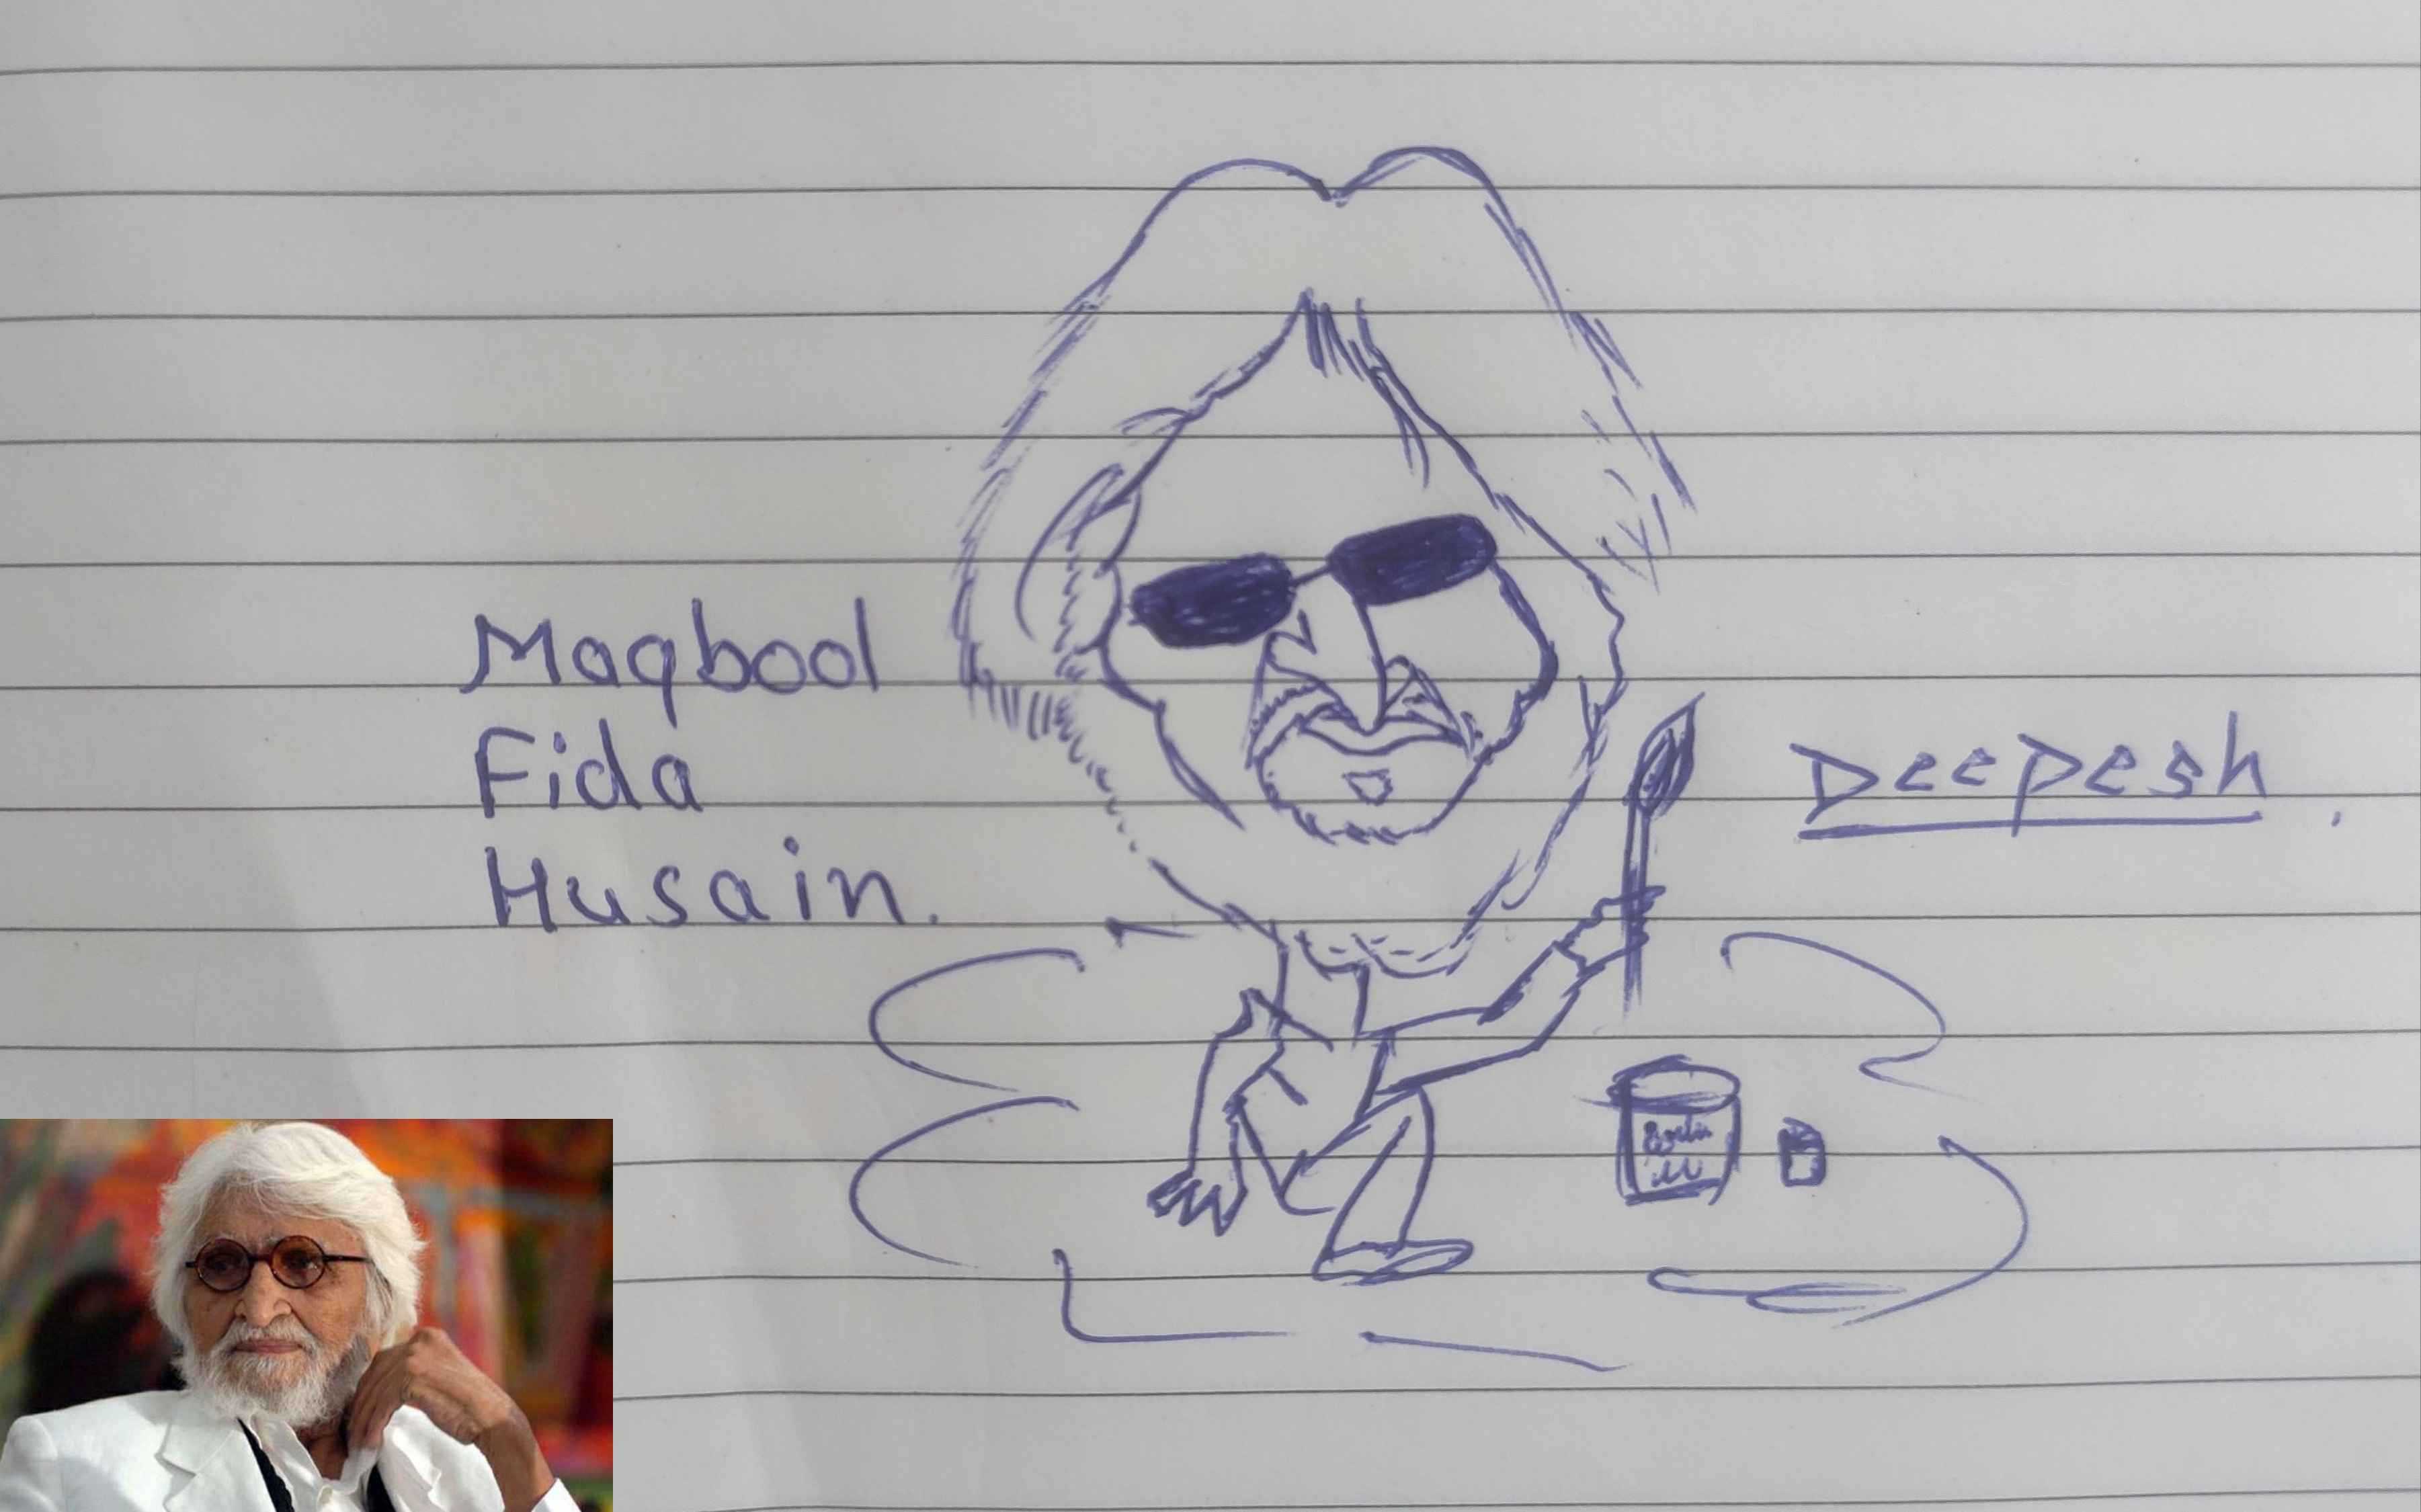 Maqbool
Fida
Husain.
Deepesh.